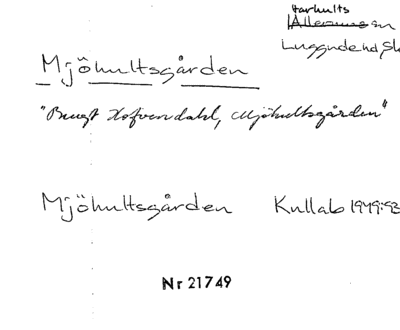 Farhults
Allerums sn
Luggude hd Sk
Mjöhultsgården
"Bengt Hofvendahl, Mjöhultsgården"
Mjöhultsgården Kullab 1949:93
Nr 21749